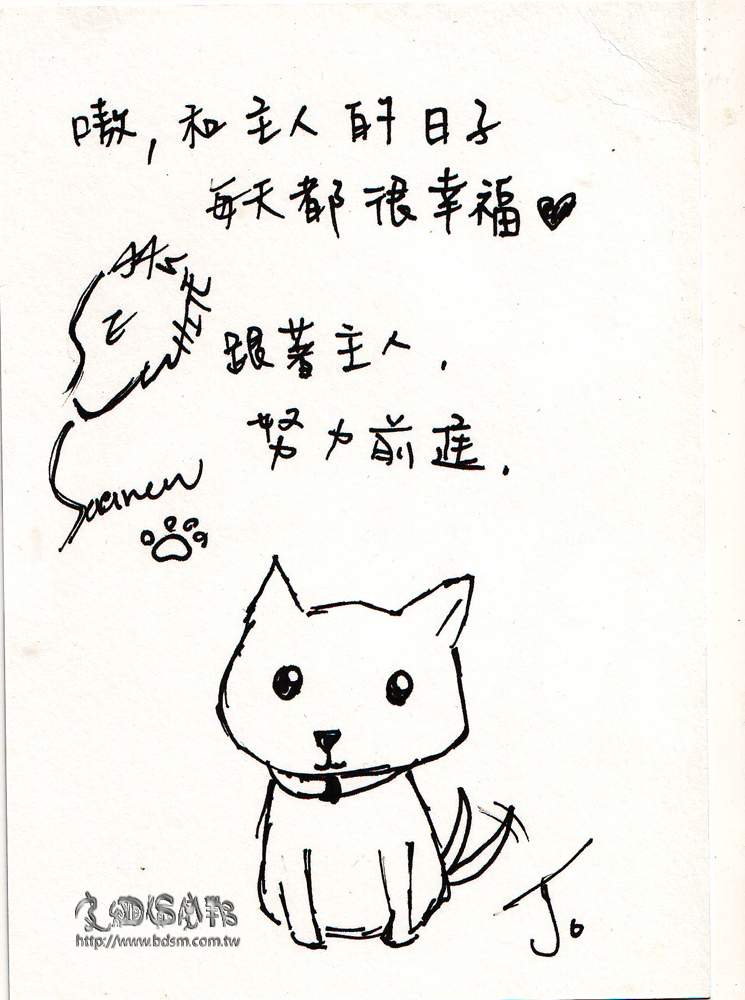 嗷,和主人的日子
每天都很幸福♥
跟著主人.
努力前進.
Saamen
J。
http://www.bdsm.com.tw